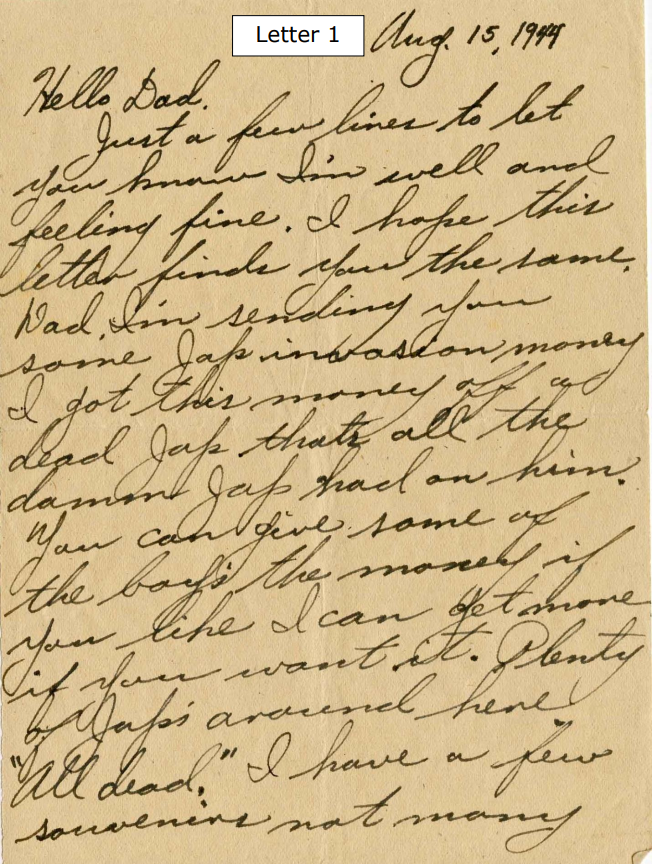 Letter 1
Aug. 15, 1944
Hello Dad.
Just a few lines to let
you know I'm well and
feeling fine. I hope this
letter finds you the same.
Dad, I'm sending you
some Jap invasion money
I got this money off a
dead Jap that's all the
damn Jap had on him.
You can give some of
the boy's the money if
you like I can get more
if you want it. Plenty
of Jap's around here
"All dead." I have a few
souvenirs not many